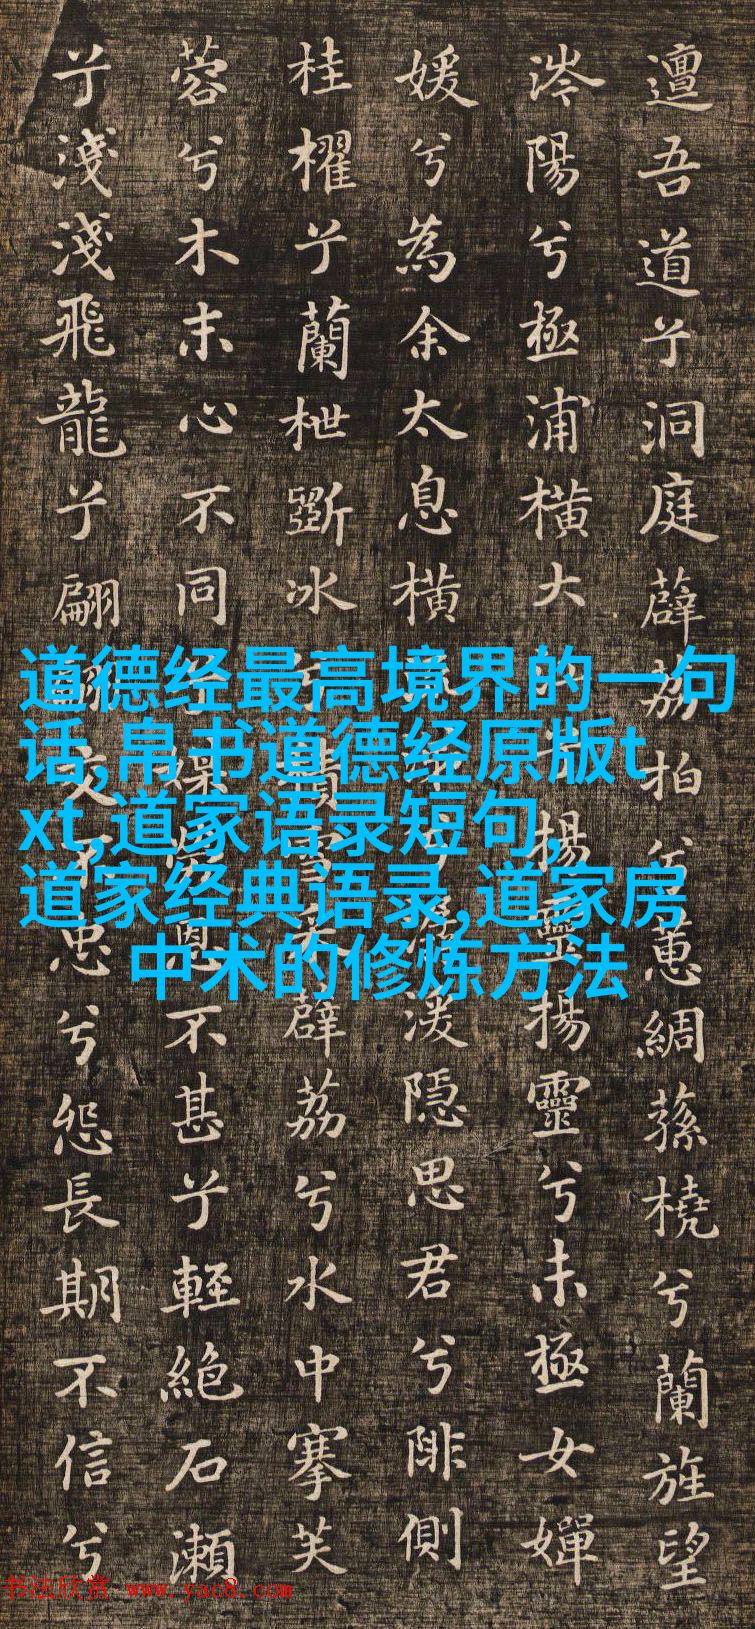 邅吾道兮洞庭薜荔拍兮蕙綢蓀橈兮蘭旌望
涔陽兮極浦橫大江兮揚靈揚靈兮未極女嬋
媛兮為余太息橫流涕兮潺湲隱思君兮陫側
桂櫂兮蘭枻斲冰兮積雪采薜荔兮水中搴芙
蓉兮木末心不同兮媒勞恩不甚兮輕絕石瀨
兮淺淺飛龍兮翩翩交不忠兮怨長期不信兮
道德经最高境界的一句
话,帛书道德经原版t
xt,道家语录短句,
道家经典语录,道家房
中术的修炼方法
书法欣赏 www.yac8.com